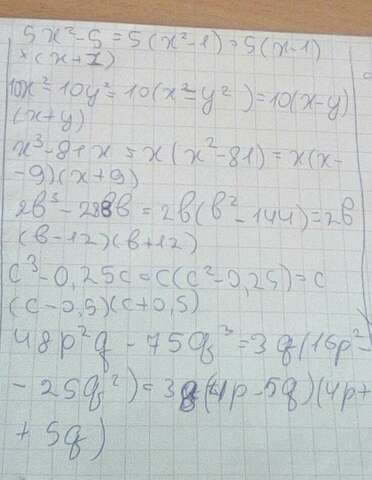 5x²-5 = 5(x²-1) = 5(x-1)
×(x+1)
10x²-10y² = 10(x²-y²) = 10(x-y)
(x+y)
x³-81x = x(x²-81) = x(x-
-9)(x+9)
2в³-288в = 2в(в²-144) = 2в
(в-12)(в+12)
c³-0,25c = c(c²-0,25) = c
(c-0,5)(c+0,5)
48p²q - 75q³ = 3q(16p²-
- 25q²) = 3q(4p-5q)(4p+
+ 5q)